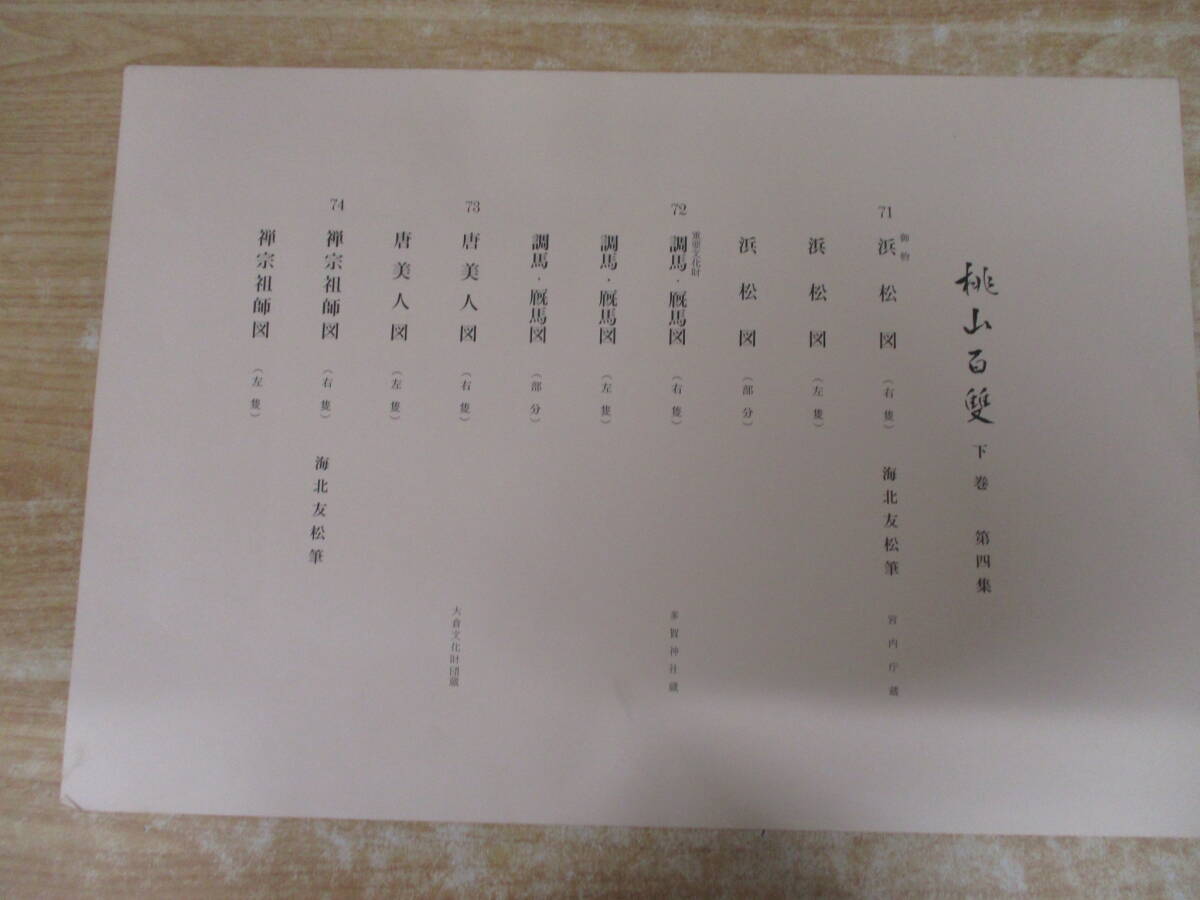 桃山百雙 下巻 第四集
御物
71 浜松図（右隻） 海北友松筆 宮内庁蔵
浜松図（左隻）
浜松図（部分）
重要文化財
72 調馬・厩馬図（右隻） 多賀神社蔵
調馬・厩馬図（左隻）
調馬・厩馬図（部分）
73 唐美人図（右隻） 大倉文化財団蔵
唐美人図（左隻）
74 禅宗祖師図（右隻） 海北友松筆
禅宗祖師図（左隻）